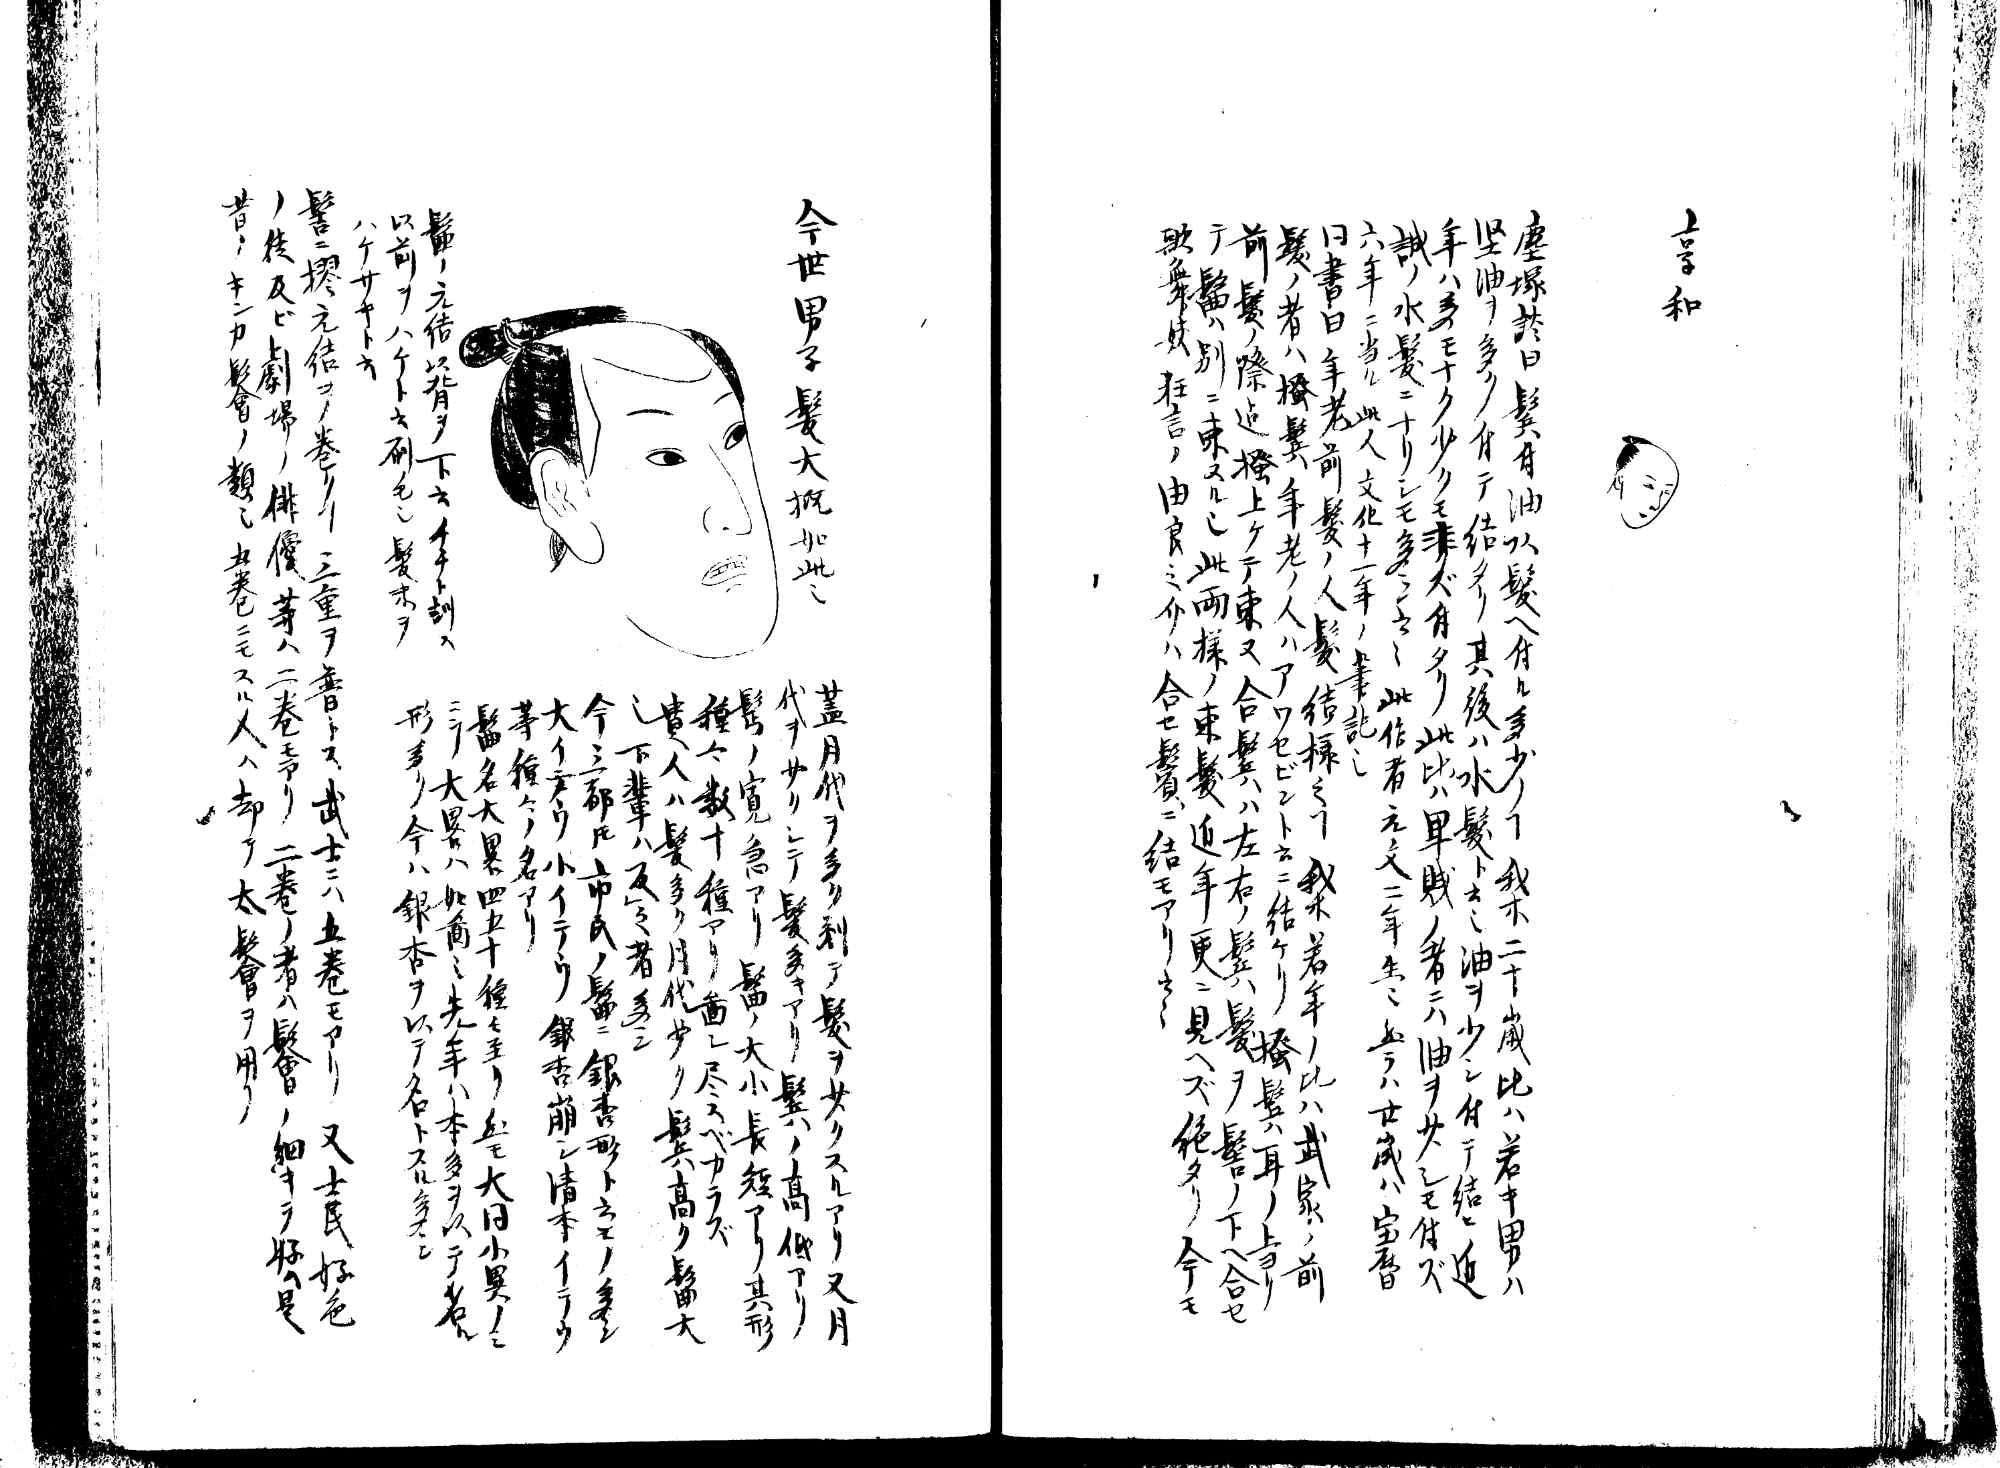 享和
塵塚談曰鬂付油以髪ヘ付ル多少ノヿ我ホ二十歳比ハ若キ男ハ
堅油ヲ多ク付テ結タリ其後ハ水髪ト云シ油ヲ少シ付テ結ヒ近
年ハ多モナク少クモ非ズ付タリ此比ハ卑賎ノ者ニハ油ヲ少シモ付ズ
誠ノ水髪ニナリシモ多シ云々此作者元文二年生ニ廿歳ハ宝暦
六年ニ当ル此人文化十一年ノ筆記也
同書曰年老前髪ノ人髪結様之ヿ我ホ若年ノ比ハ武家ノ前
髪ノ者ハ掻鬂年老ノ人ハアワセビント云ニ結ケリ掻鬂ハ耳ノ上ヨリ
前髪ノ際迠掻上ケテ束又合鬂ハ左右ノ鬂髪ヲ髻ノ下ヘ合セ
テ髷ハ別ニ束スル也此両様ノ束髪近年更ニ見ヘズ絶タリ今モ
歌舞妓狂言ノ由良之介ハ合セ鬂ニ結モアリ云々
今世男子髪大概如此也
蓋月代ヲ多ク剃テ髪ヲ少クスルアリ又月
代ヲ少クシテ髪多キアリ鬂ノ高低アリ
髷ノ寛急アリ髷ノ大小長短アリ其形
種々数十種アリ啚シ尽スベカラズ
貴人ハ髪多ク月代少ク鬂高ク髷大
也下輩ハ反之者多シ
今三都トモ市民ノ髷ニ銀杏形ト云モノ多シ
大イテウ小イテウ銀杏崩シ清本イテウ
等種々ノ名アリ
髷名大畧四五十種モ至リ然モ大同小異ノミ
ニテ大畧ハ如啚シ先年ハ本多ヲ以テ名ル
形多ク今ハ銀杏ヲ以テ名トスル多シ
髷ノ元結以背ヲ下云イチト訓ス
以前ヲハケト云刷毛也髪末ヲ
ハケサキト云
髻ニ摎元結ヲノ巻クリ三重ヲ普トス武士ニハ五巻モアリ又士民好色
ノ徒及ビ劇場ノ俳優等ハ二巻モアリ二巻ノ者ハ髻ノ細キヲ好ム是
昔ノキンカ髻ノ類也五巻ニモスル人ハ却テ太髻ヲ用フ